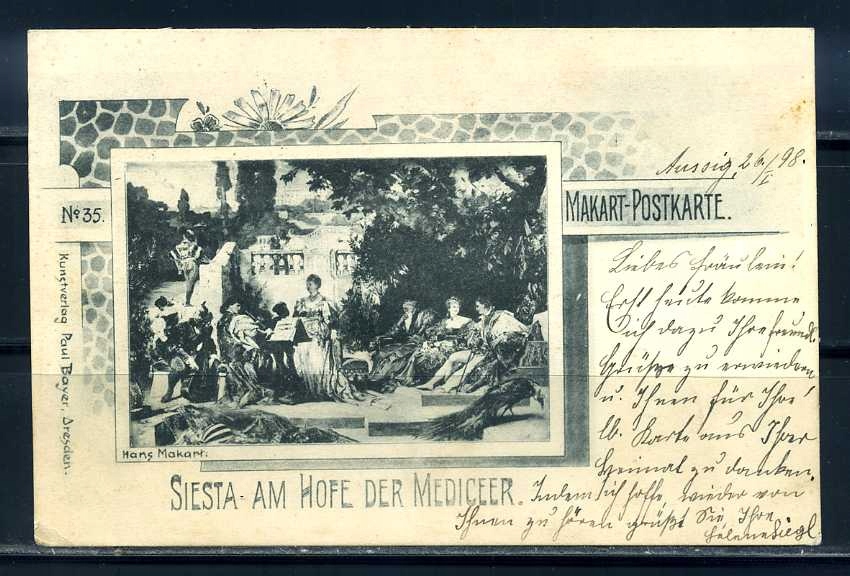 Aussig, 26/I 98.
No 35.
MAKART-POSTKARTE.
Kunstverlag Paul Bayer, Dresden.
Liebes Fräulein!
Erst heute komme
ich dazu Ihre freundl.
Grüße zu erwiedern
u. Ihnen für Ihre
lb. Karte aus Ihrer
Heimat zu danken.
Indem ich hoffe, wieder von
Ihnen zu hören grüßt Sie Ihre
Helene Siegl
Hans Makart.
SIESTA AM HOFE DER MEDICEER.